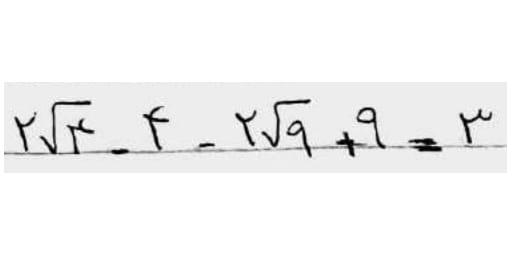 ۲√۴ - ۴ - ۲√۹ + ۹ = ۳